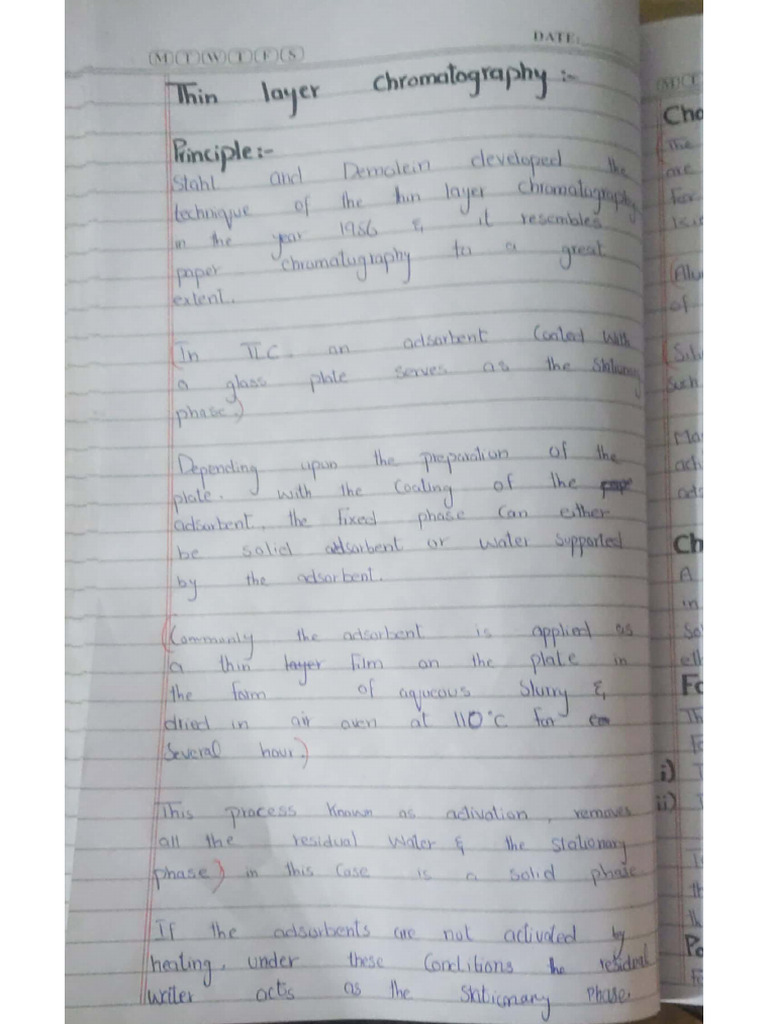 (M)(T)(W)(T)(F)(S)
DATE:
Thin layer chromatography :-
Principle:-
Stahl and Demolein developed the
technique of the thin layer chromatography
in the year 1956 & it resembles
paper chromatography to a great
extent.
(In TLC. an adsorbent Coated with
a glass plate serves as the Stationary
phase.)
Depending upon the preparation of the
plate. with the Coating of the
adsorbent, the fixed phase can either
be solid adsorbent or water supported
by the adsorbent.
(Commonly the adsorbent is applied as
a thin layer film on the plate in
the form of aqueous Slurry &
dried in air oven at 110°C for
Several hour.)
This process known as activation, removes
all the residual water & the stationary
phase) in this Case is a solid phase
If the adsorbents are not activated by
heating, under these Conditions the residual
writer acts as the Stationary Phase.
Cha
The
are
For
(Alu
of
(Sil
Such
Ma
ach
ads
Ch
A
in
So
eth
Fo
Th
Fo
i) T
ii) T
th
th
Po
Fo